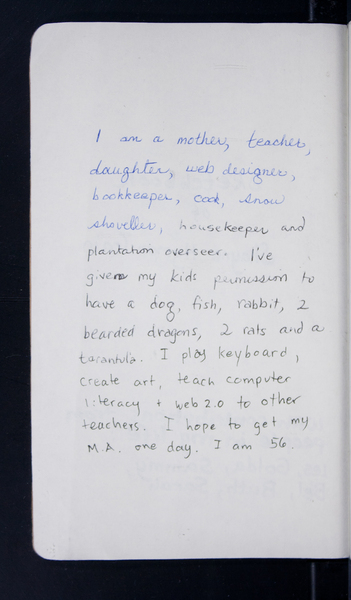 I am a mother, teacher,
daughter, web designer,
bookkeeper, cook, snow
shoveller, housekeeper and
plantation overseer. I've
given my kids permission to
have a dog, fish, rabbit, 2
bearded dragons, 2 rats and a
tarantula. I play keyboard,
create art, teach computer
literacy + web 2.0 to other
teachers. I hope to get my
M.A. one day. I am 56.